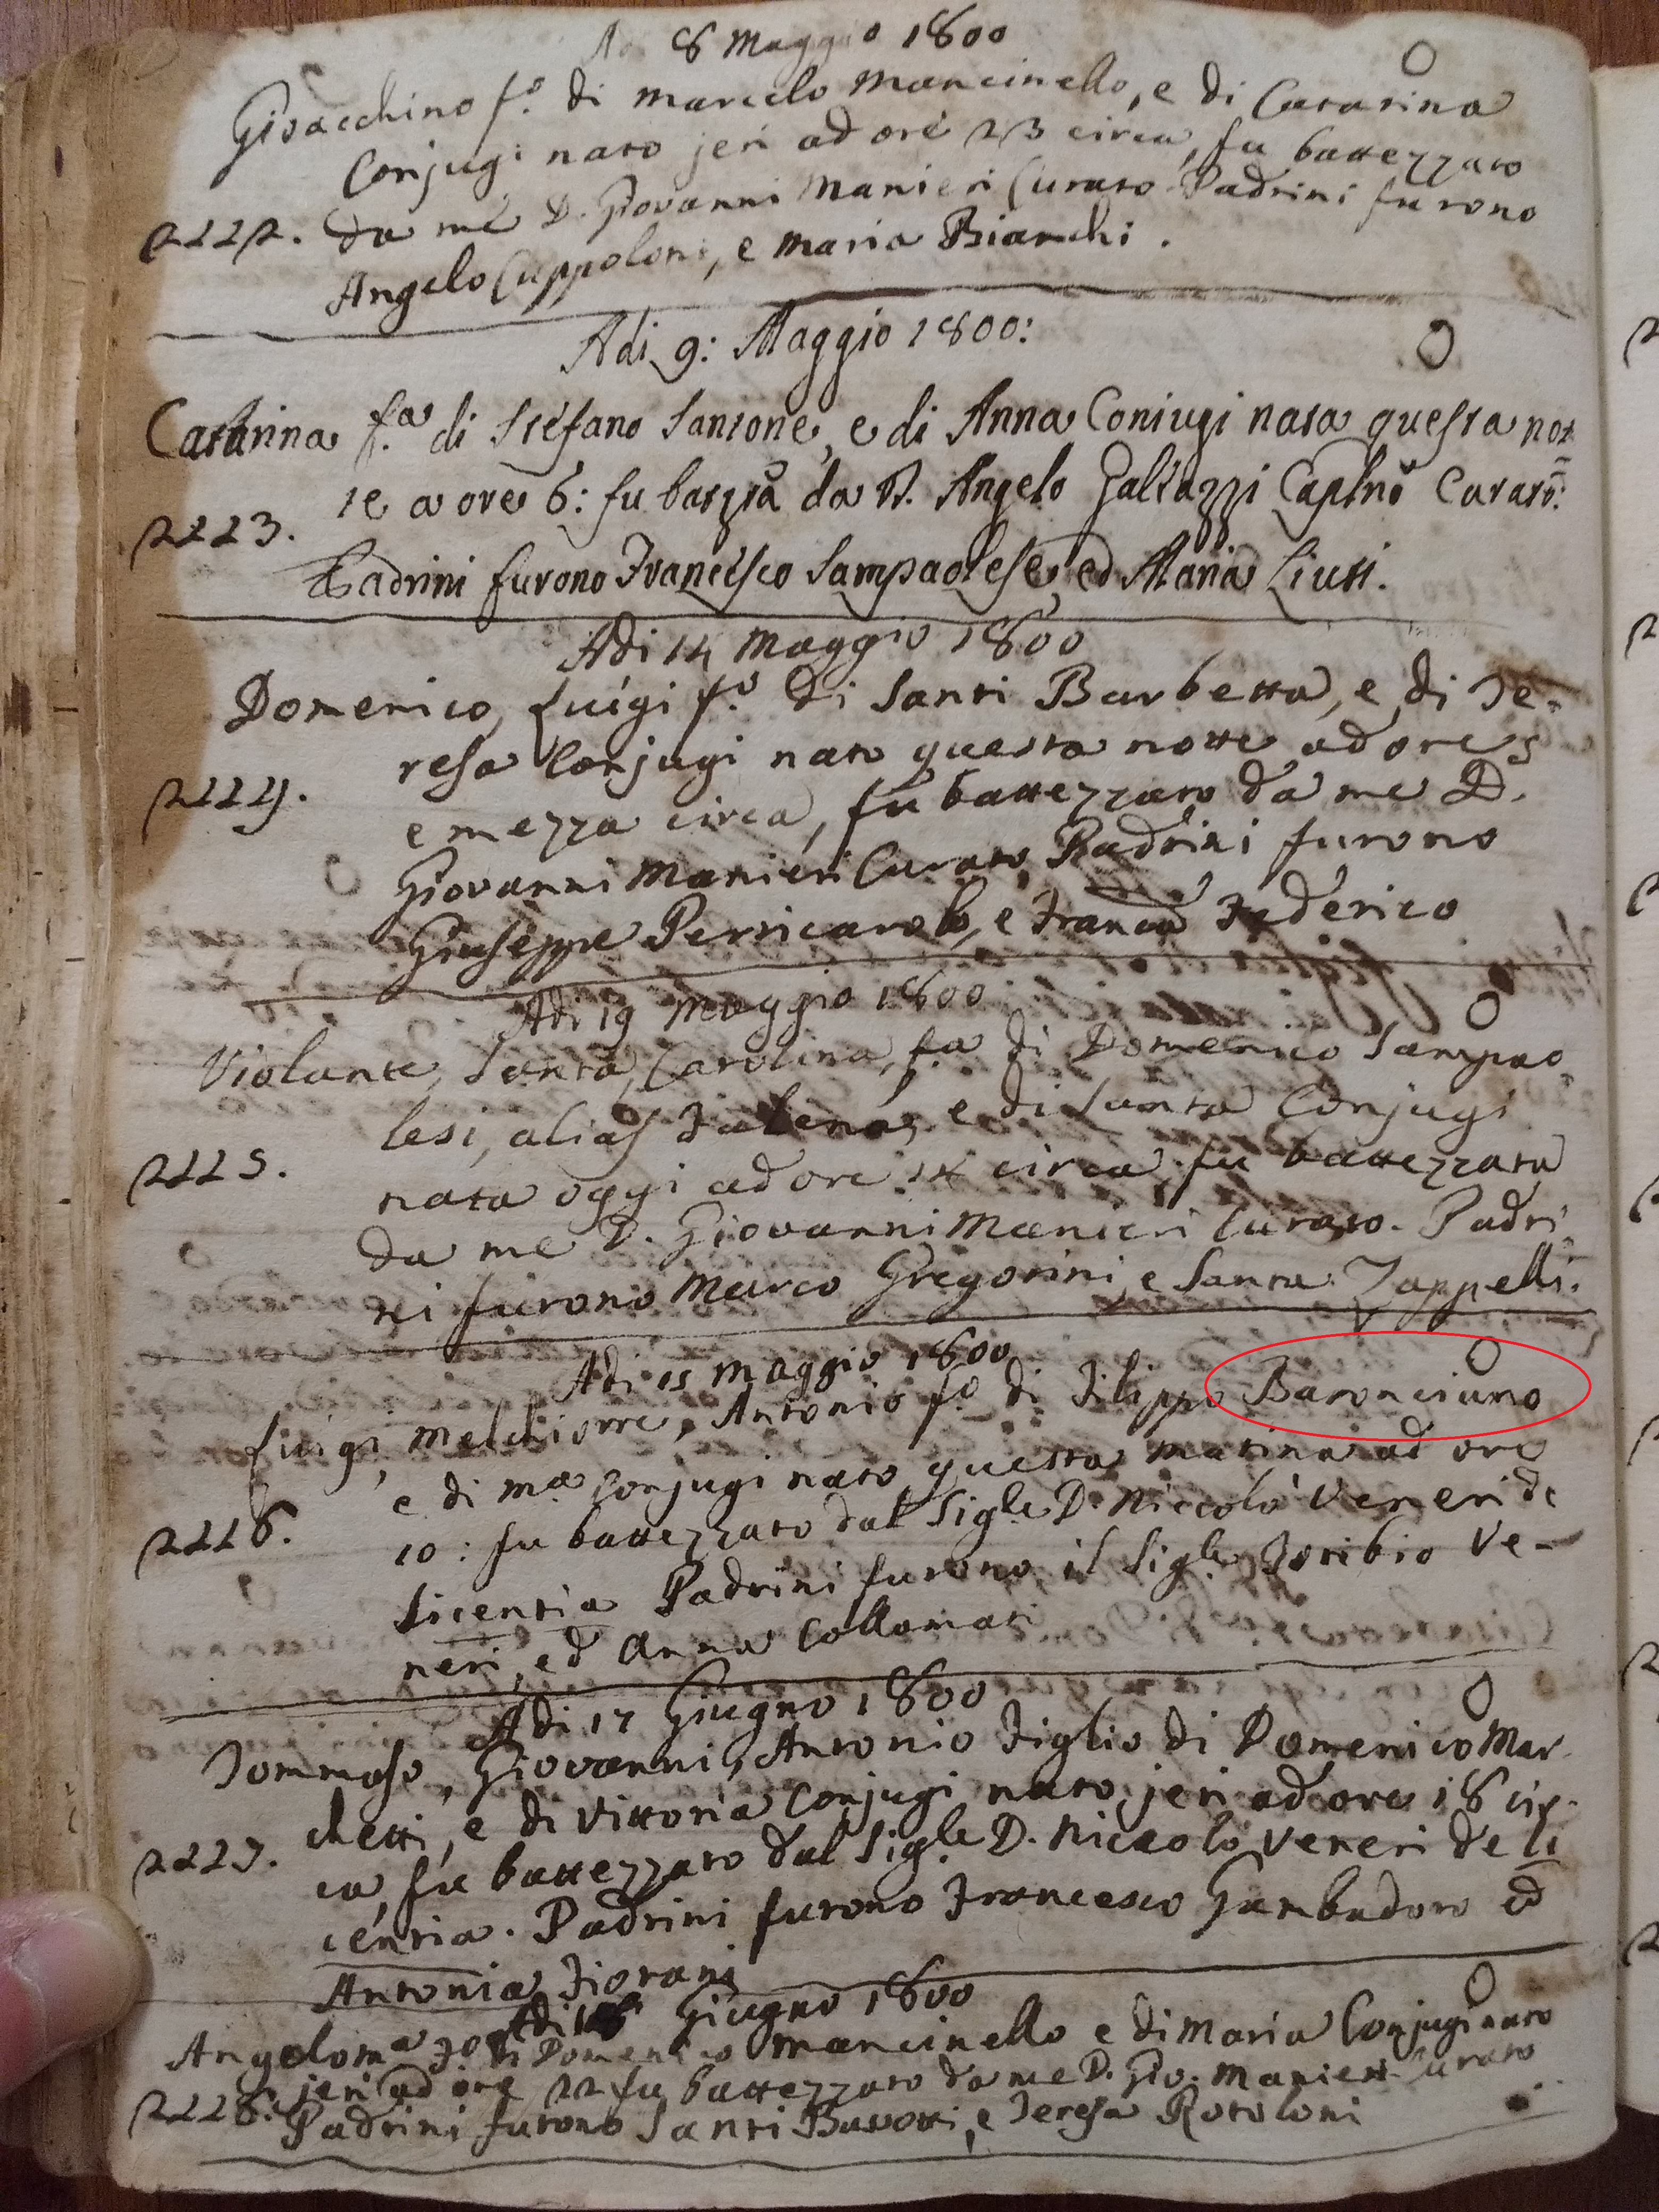 Adi 8 Maggio 1800
Gioacchino f.º di Marcelo Mancinello, e di Catarina
Conjugi nato jeri ad ore 23 circa, fu battezzato
2222. da me D. Giovanni Manieri Curato. Padrini furono
Angelo Cuppoloni, e Maria Bianchi.
Adi 9: Maggio 1800:
Catarina f.ª di Stefano Santone, e di Anna Coniugi nata questa not
te a ore 6: fu batzta da D. Angelo Galeazzi Caplno Curato:
2223.
Padrini furono Francesco Sampaolese, ed Maria Liuti.
Adi 14 Maggio 1800
Domenico, Luigi f.º di Santi Barbetta, e di Te-
resa Conjugi nato questa notte ad ore 5
2224.
e mezza circa, fu battezzato da me D.
Giovanni Manieri Curato, Padrini furono
Giuseppe Perticarolo, e Franca Federico
Adi 19 Maggio 1800
Violante, Santa, Carolina, fa di Domenico Sampao
lesi, alias e di Santa Conjugi
2225.
nata oggi ad ore 14 circa, fu battezzata
da me D. Giovanni Manieri Curato. Padri
ni furono Marco Gregorini, e Santa Zappelli.
Adi 25 Maggio 1800
Luigi, Melchiorre, Antonio f.º di Filippo Baronciano
e di Mª Conjugi nato questa matina ad ore
2226.
10: fu battezzato dal Sigle D. Niccolò Veneri de
licentia Padrini furono il Sigle Toribio Ve-
neri, ed Anna Collamati
Adi 17 Giugno 1800
Tommaso, Giovanni, Antonio Figlio di Domenico Mar
chetti, e di Vittoria Conjugi nato jeri ad ore 18 cir-
2227.
ca, fu battezzato dal Sigle D. Niccolò Veneri de li
centia. Padrini furono Francesco Gambadoro ed
Antonia Fiorani
Adi Giugno 1800
Angeloma Fª di Domenico Mancinello e di Maria Conjugi nato
jeri ad ore 22 fu battezzato da me D. Gio. Manieri Curato
2228. Padrini furono Santi Buvotti, e Teresa Rotoloni